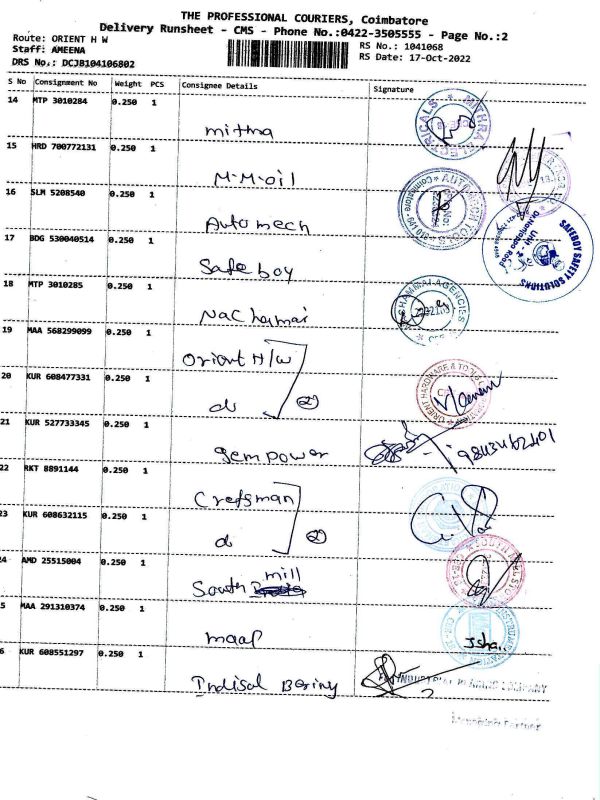 THE PROFESSIONAL COURIERS, Coimbatore
Delivery Runsheet - CMS - Phone No.:0422-3505555 - Page No.:2
Route: ORIENT H W
RS No.: 1041068
Staff: AMEENA
RS Date: 17-Oct-2022
DRS No.: DCJB104106802
S No Consignment No Weight PCS Consignee Details Signature
14 MTP 3010284 0.250 1
mithra
MITHRA ELECTRICALS
15 HRD 700772131 0.250 1
M.M.oil
16 SLM 5208540 0.250 1
Automech
17 BDG 530040514 0.250 1
Safe boy
SAFEBOY SAFETY SOLUTIONS
18 MTP 3010285 0.250 1
Nachammai
AGENCIES
19 MAA 568299099 0.250 1
Orient H/W
20 KUR 608477331 0.250 1
do (2)
ORIENT HARDWARE & TOOLS
21 KUR 527733345 0.250 1
Gempower
22 RKT 8891144 0.250 1
Crefsman
23 KUR 608632115 0.250 1
do (2)
24 AMD 25515004 0.250 1
South mill
25 MAA 291310374 0.250 1
maap
26 KUR 608551297 0.250 1
Indisal Boring
INDUSTRIAL BORING COMPANY